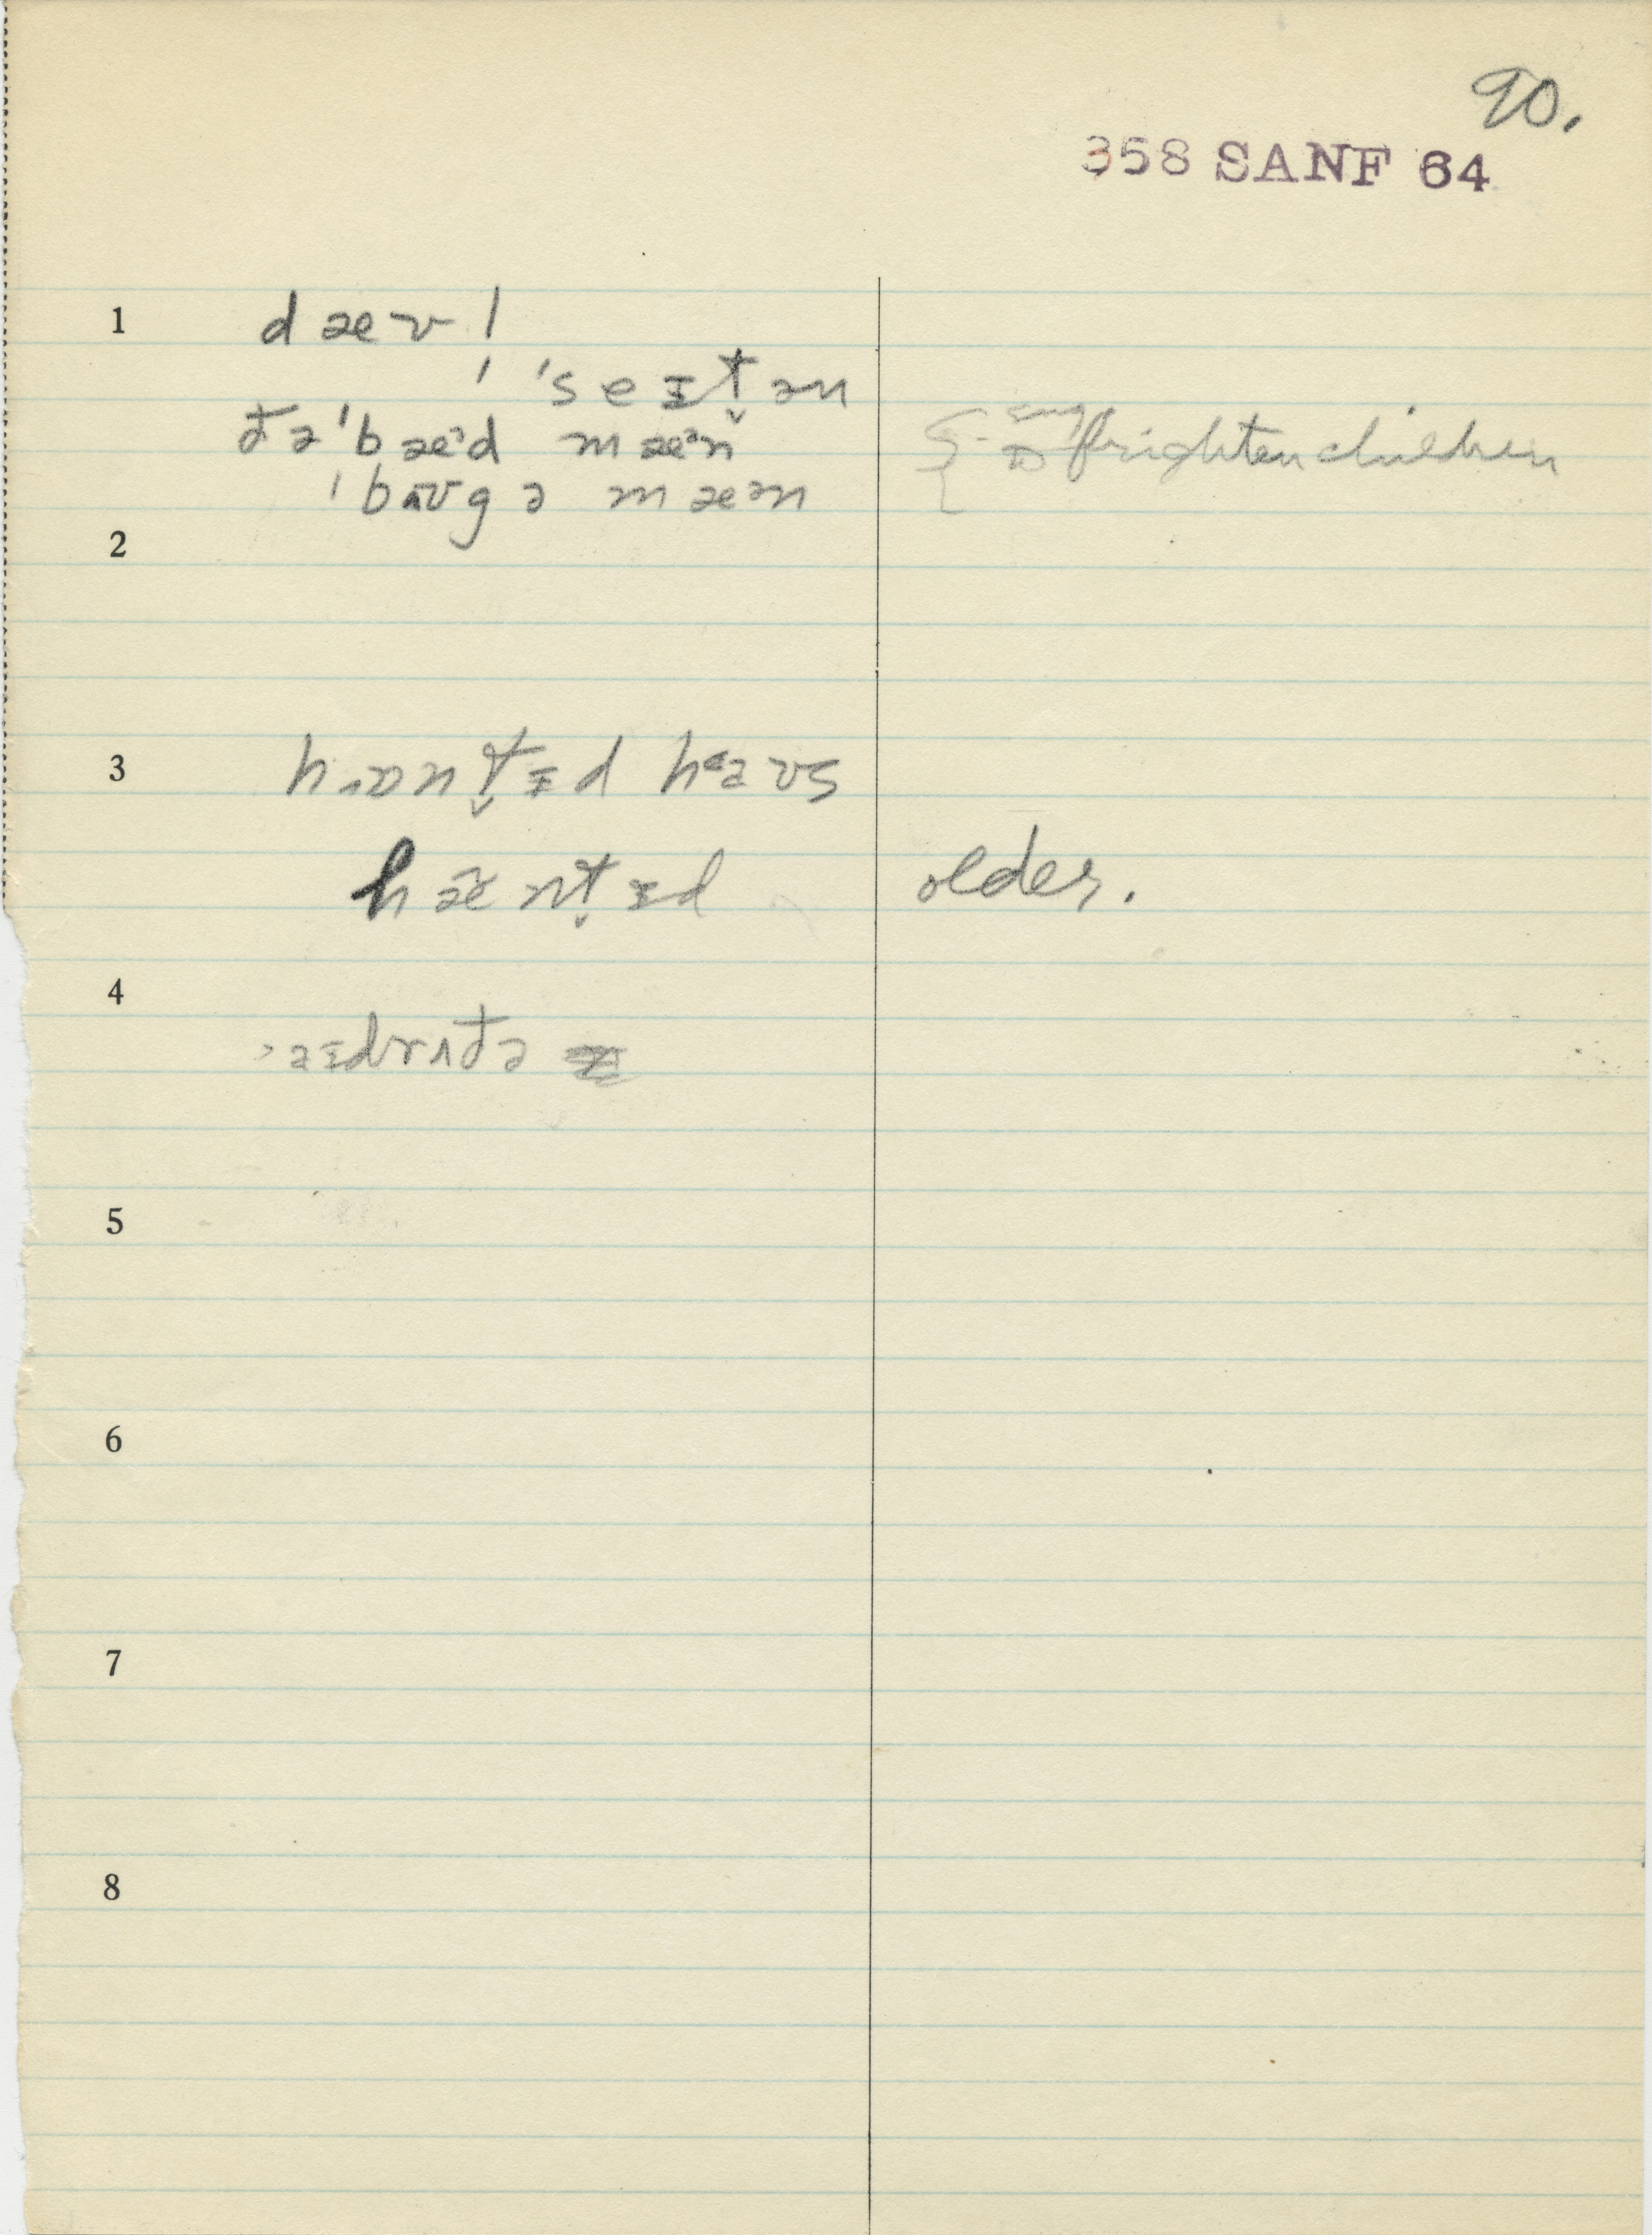 90.
358 SANF 64
1 dævl
ˈˈseɪt̬ən
ðəˈbæᵊd mæᵊn
ˈbʌʊgə mæən to frighten children
2
3 hɒnt̬ɪd hɛəʊs
hænt̬ɪd older.
4
əɪdrʌðə
5
6
7
8